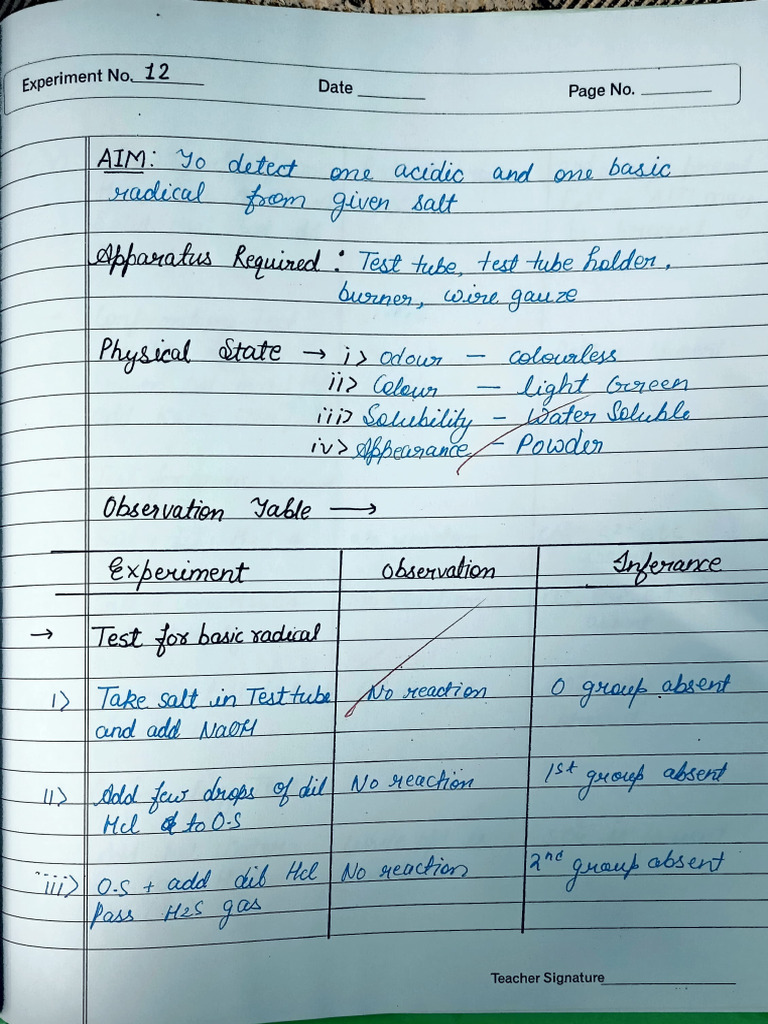 Experiment No. 12 Date Page No.
AIM: To detect one acidic and one basic
radical from given salt
Apparatus Required : Test tube, test tube holder,
burner, wire gauze
Physical State → i> Odour — colourless
ii> Colour — light Green
iii> Solubility — Water Soluble
iv> Appearance — Powder
Observation Table →
Experiment Observation Inferance
→ Test for basic radical
i> Take salt in Test tube No reaction 0 group absent
and add NaOH
ii> Add few drops of dil No reaction 1st group absent
Hcl to O.S
iii> O.S + add dil Hcl No reaction 2nd group absent
Pass H2S gas
Teacher Signature